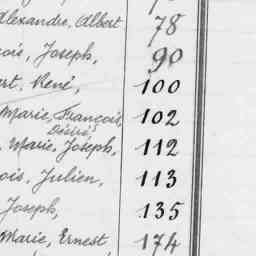 Alexandre, Albert 78
ois, Joseph, 90
ert, René, 100
Marie, François 102
Désiré,
, Marie, Joseph, 112
ois, Julien, 113
Joseph, 135
Marie, Ernest 174